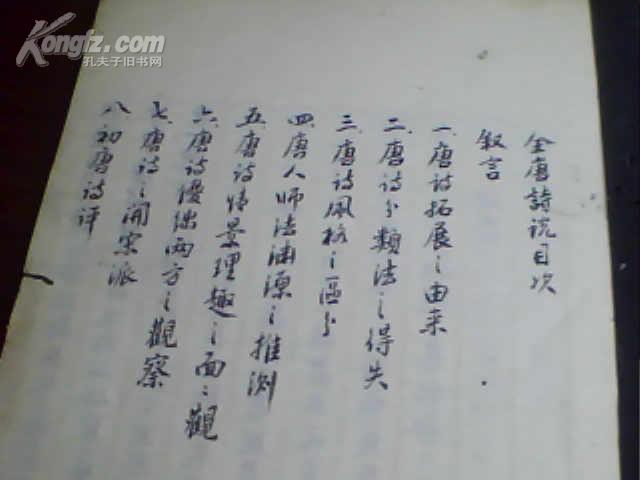 Kongfz.com
孔夫子旧书网
全唐詩说目次
叙言
一、唐诗拓展之由来
二、唐诗分類法之得失
三、唐诗風格之區分
四、唐人师法渊源之推测
五、唐诗情景理趣之面面觀
六、唐诗優绌两方之觀察
七、唐诗之開宗派
八、初唐诗评